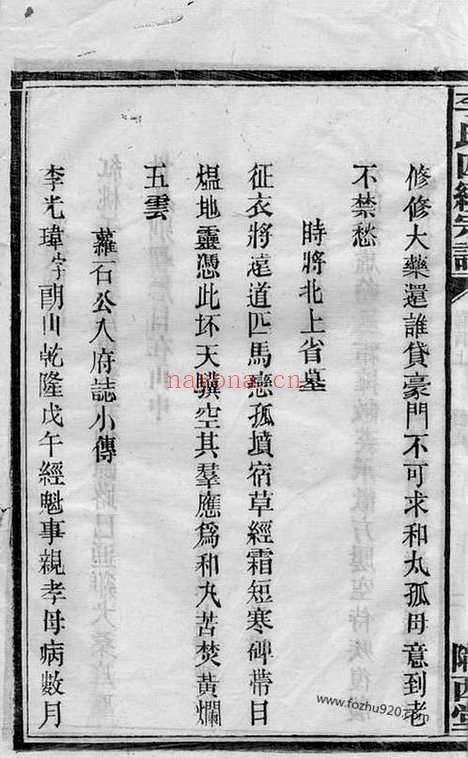 李氏四編宗譜
隴西堂
修修大藥還誰貸豪門不可求和太孤母意到老
不禁愁
時將北上省墓
征衣將遠道匹馬戀孤墳宿草經霜短寒碑帶日
熅地靈憑此坏天驥空其羣應爲和丸苦焚黃爛
五雲
蘿石公入府誌小傳
李光瑋字朗山乾隆戊午經魁事親孝母病數月
nayona.cn
www.fozhu920.com